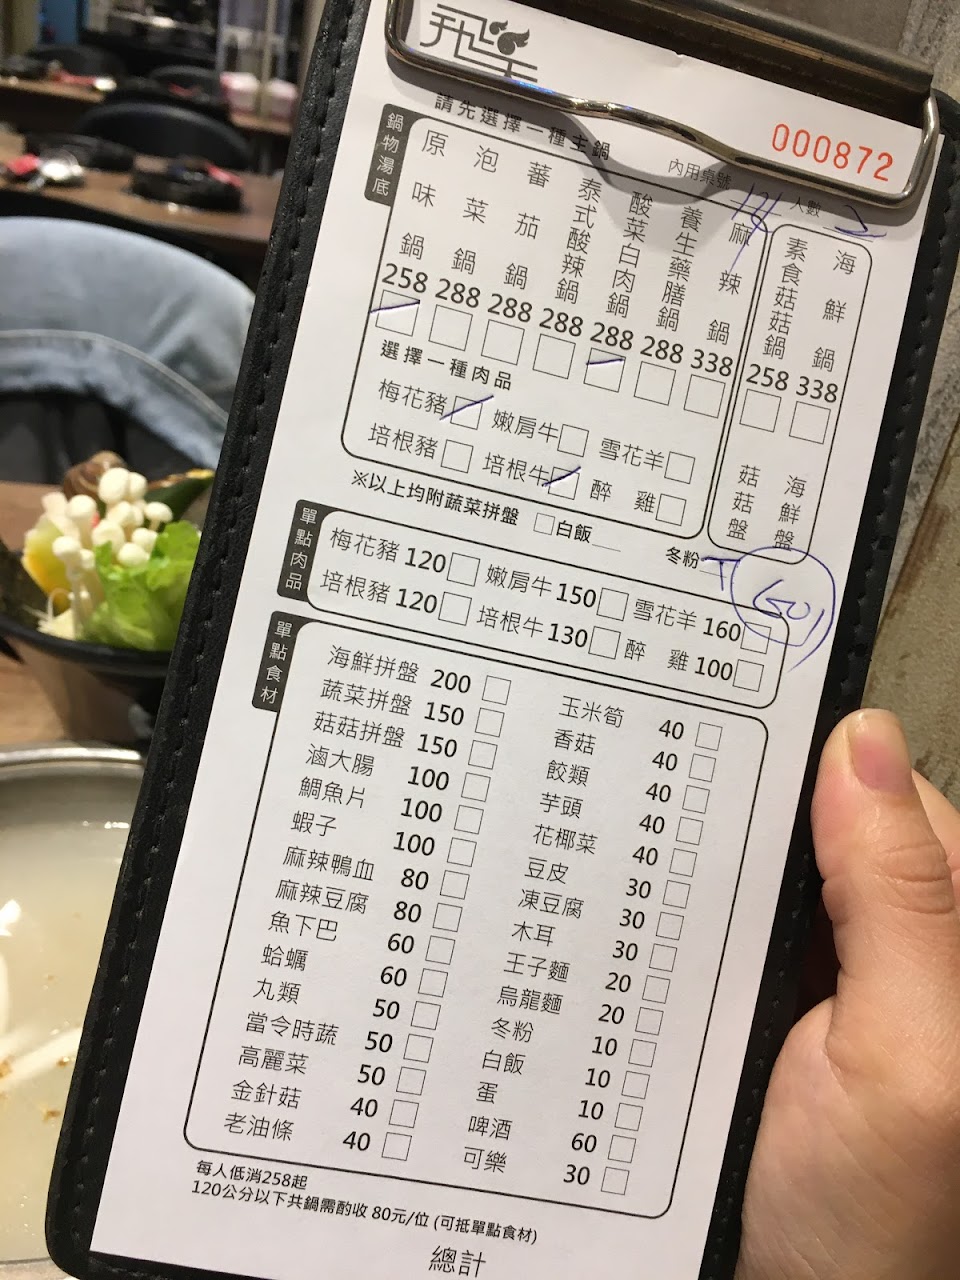 000872
請先選擇一種主鍋
內用桌號
人數 2
鍋物湯底
原味鍋 258
泡菜鍋 288
蕃茄鍋 288
泰式酸辣鍋 288
酸菜白肉鍋 288
養生藥膳鍋 288
麻辣鍋 338
素食菇菇鍋 258 菇菇盤
海鮮鍋 338 海鮮盤
選擇一種肉品
梅花豬 嫩肩牛 雪花羊
培根豬 培根牛 醉雞
※以上均附蔬菜拼盤 白飯 冬粉
單點肉品
梅花豬 120 嫩肩牛 150 雪花羊 160
培根豬 120 培根牛 130 醉雞 100
單點食材
海鮮拼盤 200
蔬菜拼盤 150
菇菇拼盤 150
滷大腸 100
鯛魚片 100
蝦子 100
麻辣鴨血 80
麻辣豆腐 80
魚下巴 60
蛤蠣 60
丸類 50
當令時蔬 50
高麗菜 50
金針菇 40
老油條 40
玉米筍 40
香菇 40
餃類 40
芋頭 40
花椰菜 40
豆皮 30
凍豆腐 30
木耳 30
王子麵 20
烏龍麵 20
冬粉 10
白飯 10
蛋 10
啤酒 60
可樂 30
每人低消258起
120公分以下共鍋需酌收 80元/位 (可抵單點食材)
總計